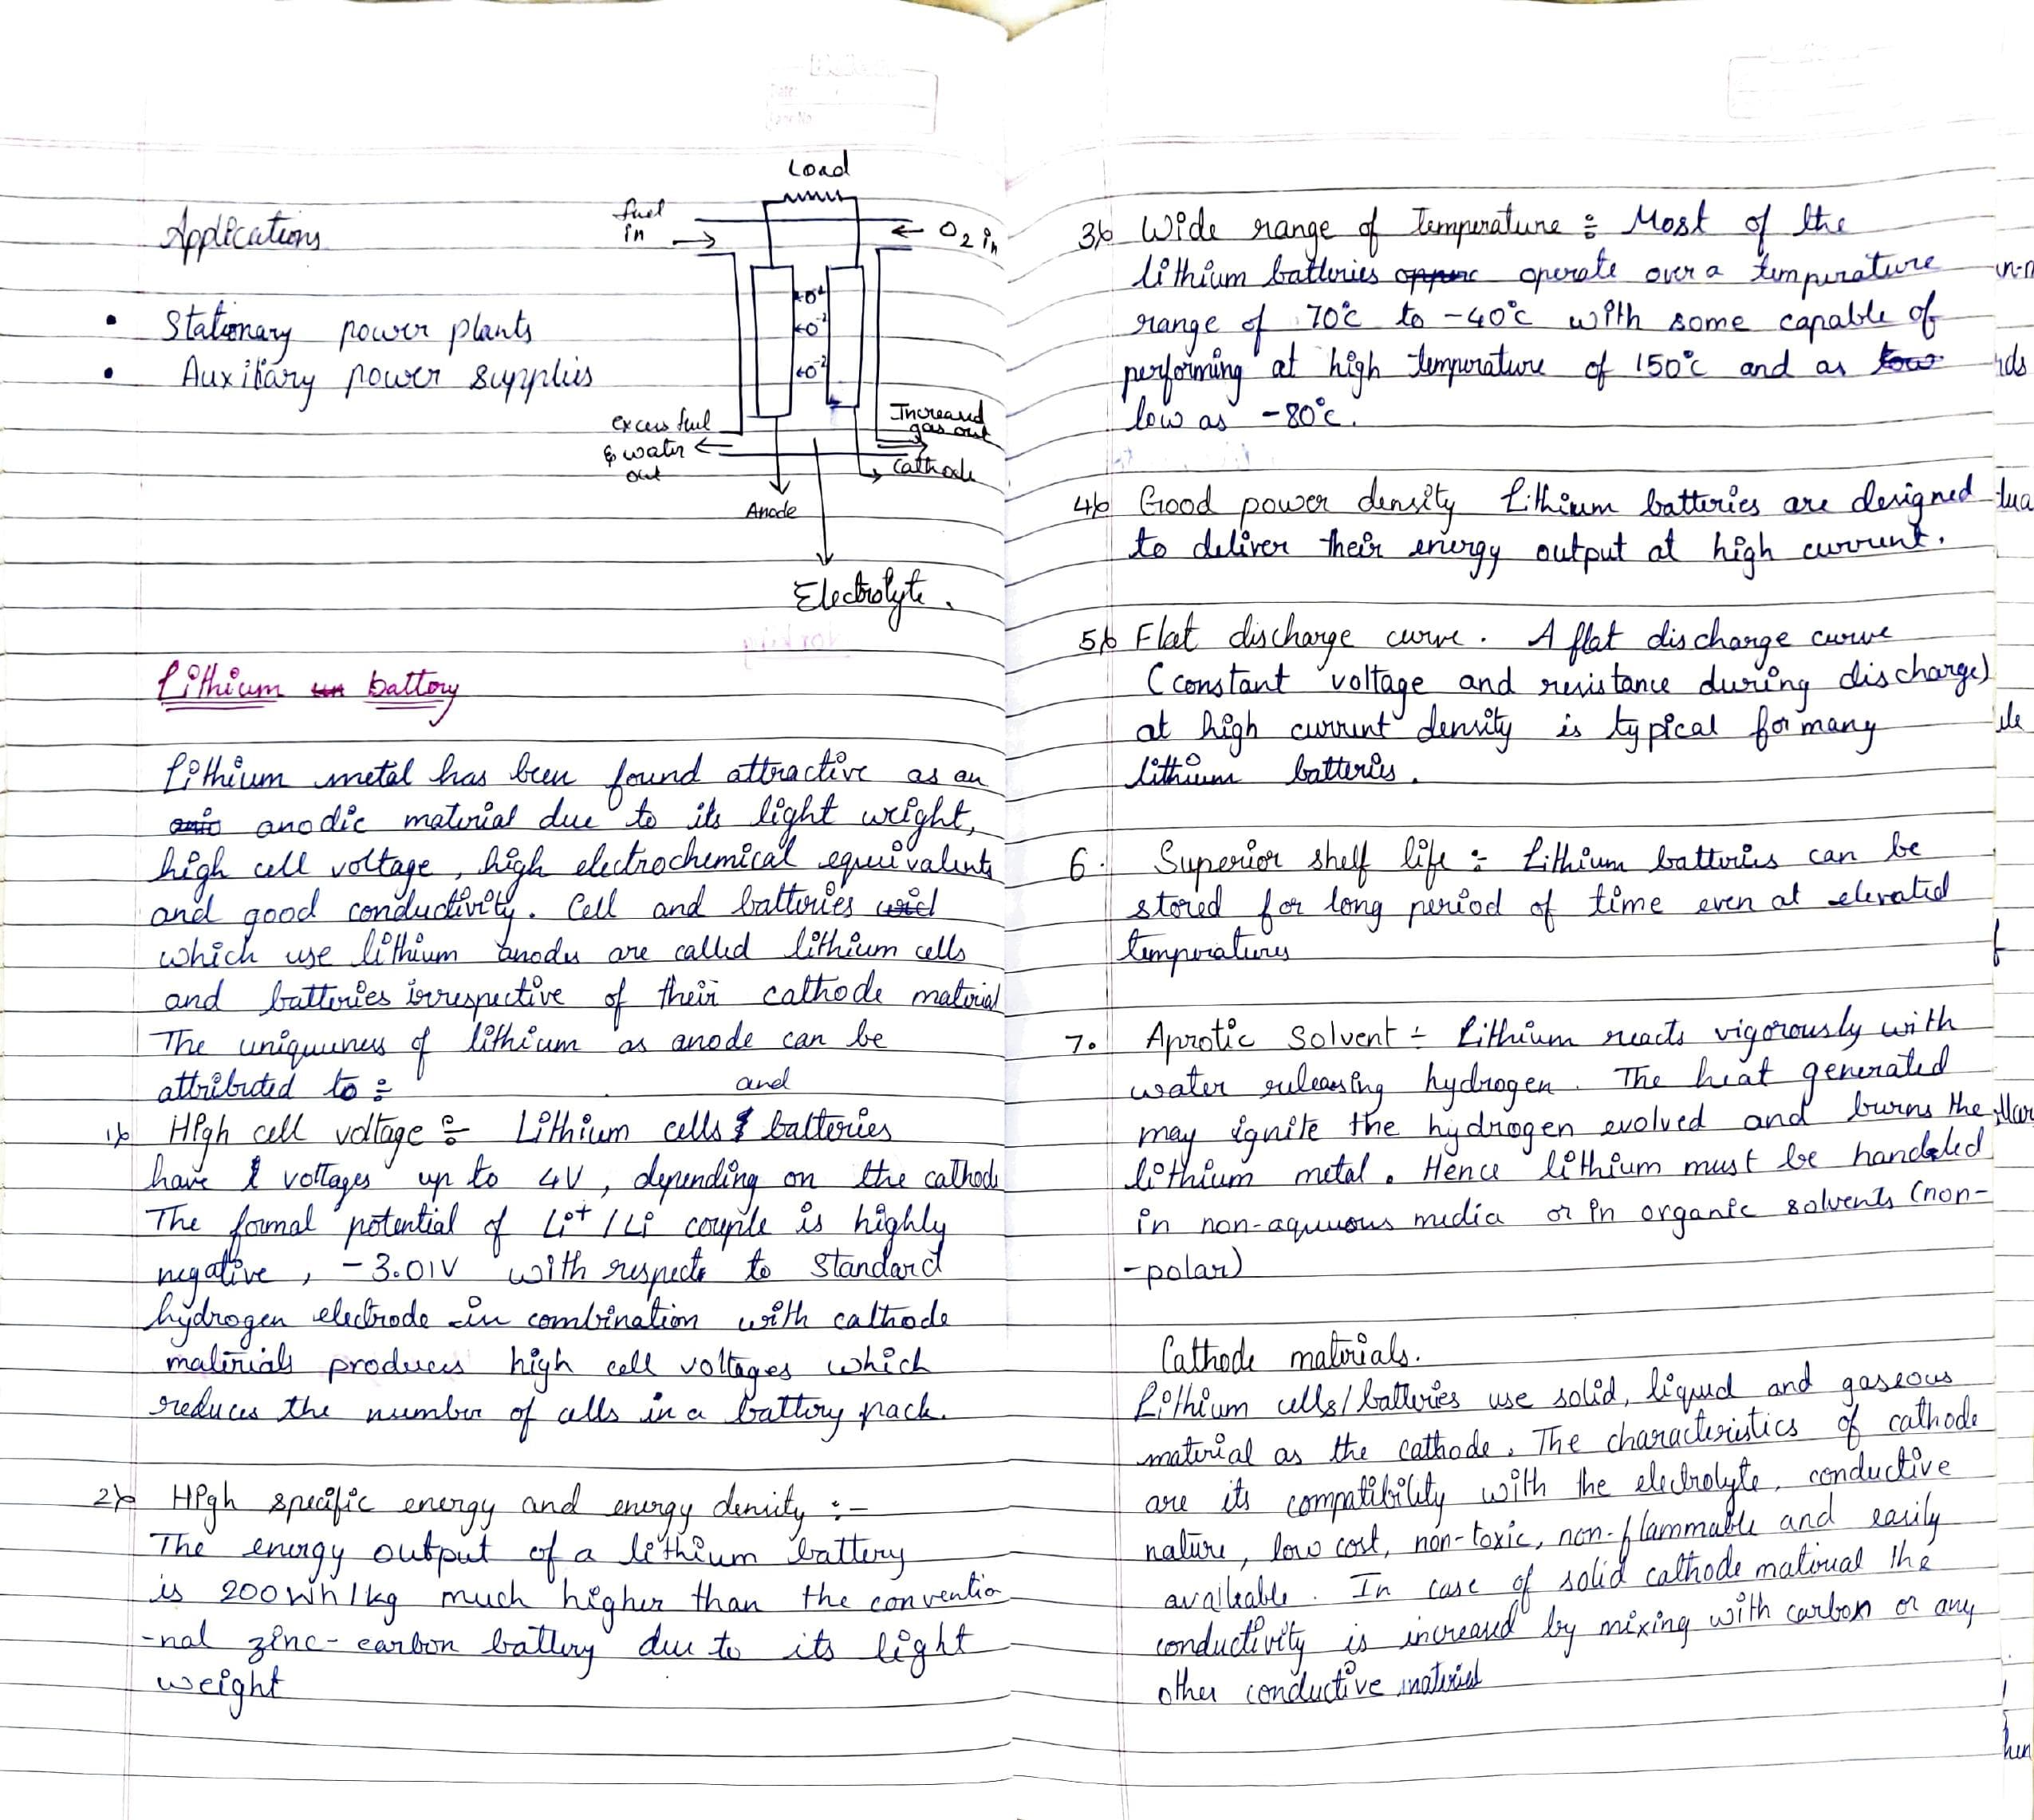 Load
fuel
in
O2 in
Applications
• Stationary power plants
• Auxiliary power supplies
O-2
O-2
excess fuel
& water
out
Increased
gas out
Cathode
Anode
Electrolyte.
Lithium battery
Lithium metal has been found attractive as an
anodic material due to its light weight,
high cell voltage, high electrochemical equivalents
and good conductivity. Cell and batteries
which use lithium anodes are called lithium cells
and batteries irrespective of their cathode material
The uniqueness of lithium as anode can be
attributed to :
and
1) High cell voltage :- Lithium cells batteries
have voltages up to 4V, depending on the cathode
The formal potential of Li+ / Li couple is highly
negative, -3.01V with respects to Standard
hydrogen electrode in combination with cathode
materials produces high cell voltages which
reduces the number of cells in a battery pack.
2) High specific energy and energy density :-
The energy output of a lithium battery
is 200Wh/kg much higher than the conventio
-nal zinc-carbon battery due to its light
weight
3) Wide range of Temperature : Most of the
lithium batteries operate over a temperature
range of 70°C to -40°C with some capable of
performing at high temperature of 150°C and as
low as -80°C.
4) Good power density Lithium batteries are designed
to deliver their energy output at high current.
5) Flat discharge curve. A flat discharge curve
(constant voltage and resistance during discharge)
at high current density is typical for many
lithium batteries.
6. Superior shelf life :- Lithium batteries can be
stored for long period of time even at elevated
temperatures
7. Aprotic Solvent :- Lithium reacts vigorously with
water releasing hydrogen. The heat generated
may ignite the hydrogen evolved and burns the
lithium metal. Hence lithium must be handled
in non-aqueous media or in organic solvents (non-
-polar)
Cathode materials.
Lithium cells/batteries use solid, liquid and gaseous
material as the cathode. The characteristics of cathode
are its compatibility with the electrolyte, conductive
nature, low cost, non-toxic, non-flammable and easily
available. In case of solid cathode material the
conductivity is increased by mixing with carbon or any
other conductive material